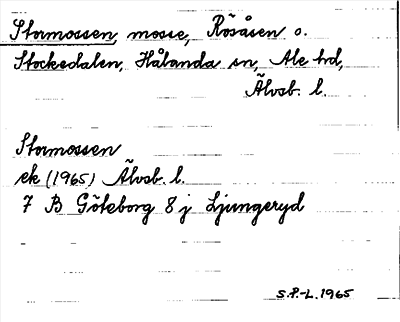 Stormossen, mosse, Rösåsen o.
Stockedalen, Hålanda sn, Ale hd,
Älvsb. l.
Stormossen
ek (1965) Älvsb. l.
7 B Göteborg 8 j Ljungeryd
S.P.-L. 1965